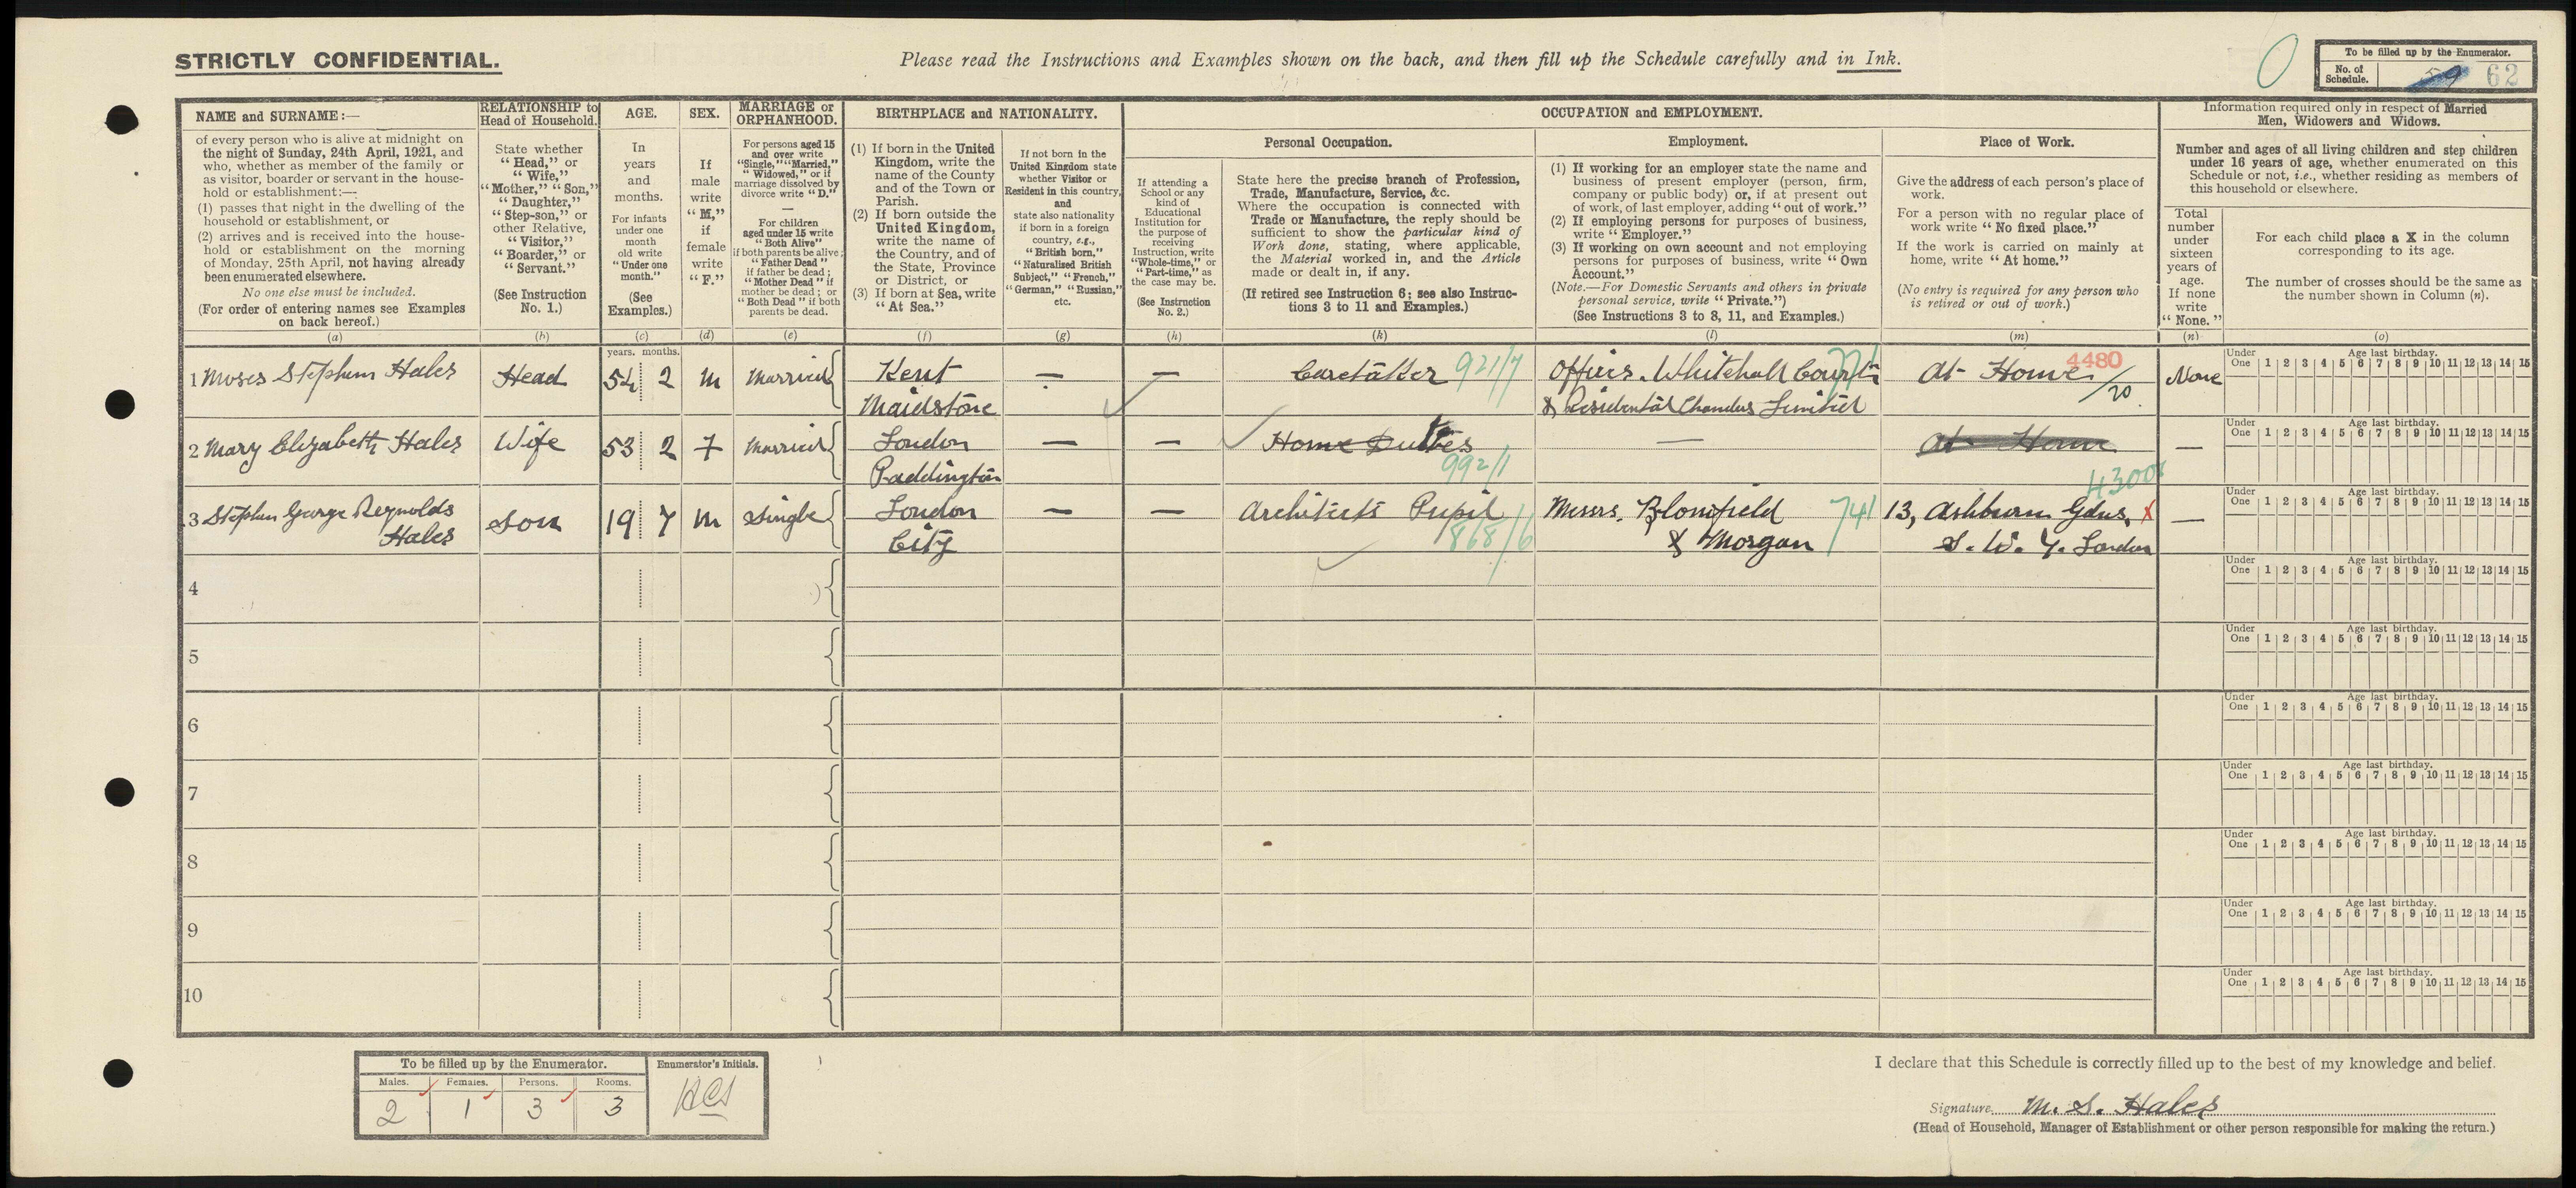 STRICTLY CONFIDENTIAL.
Please read the Instructions and Examples shown on the back, and then fill up the Schedule carefully and in Ink.
0
To be filled up by the Enumerator.
No. of Schedule. 59 62
NAME and SURNAME:—
of every person who is alive at midnight on
the night of Sunday, 24th April, 1921, and
who, whether as member of the family or
as visitor, boarder or servant in the house-
hold or establishment:—
(1) passes that night in the dwelling of the
household or establishment, or
(2) arrives and is received into the house-
hold or establishment on the morning
of Monday, 25th April, not having already
been enumerated elsewhere.
No one else must be included.
(For order of entering names see Examples
on back hereof.)
(a)
RELATIONSHIP to
Head of Household.
State whether
"Head," or
"Wife,"
"Mother," "Son,"
"Daughter,"
"Step-son," or
other Relative,
"Visitor,"
"Boarder," or
"Servant."
(See Instruction
No. 1.)
(b)
AGE.
In
years
and
months.
For infants
under one
month
old write
"Under one
month."
(See
Examples.)
(c)
SEX.
If
male
write
"M,"
if
female
write
"F."
(d)
MARRIAGE or
ORPHANHOOD.
For persons aged 15
and over write
"Single," "Married,"
"Widowed," or if
marriage dissolved by
divorce write "D."
—
For children
aged under 15 write
"Both Alive"
if both parents be alive;
"Father Dead"
if father be dead;
"Mother Dead" if
mother be dead; or
"Both Dead" if both
parents be dead.
(e)
BIRTHPLACE and NATIONALITY.
(1) If born in the United
Kingdom, write the
name of the County
and of the Town or
Parish.
(2) If born outside the
United Kingdom,
write the name of
the Country, and of
the State, Province
or District, or
(3) If born at Sea, write
"At Sea."
(f)
If not born in the
United Kingdom state
whether Visitor or
Resident in this country,
and
state also nationality
if born in a foreign
country, e.g.,
"British born,"
"Naturalised British
Subject," "French,"
"German," "Russian,"
etc.
(g)
OCCUPATION and EMPLOYMENT.
If attending a
School or any
kind of
Educational
Institution for
the purpose of
receiving
Instruction, write
"Whole-time," or
"Part-time," as
the case may be.
(See Instruction
No. 2.)
(h)
Personal Occupation.
State here the precise branch of Profession,
Trade, Manufacture, Service, &c.
Where the occupation is connected with
Trade or Manufacture, the reply should be
sufficient to show the particular kind of
Work done, stating, where applicable,
the Material worked in, and the Article
made or dealt in, if any.
(If retired see Instruction 6; see also Instruc-
tions 3 to 11 and Examples.)
(k)
Employment.
(1) If working for an employer state the name and
business of present employer (person, firm,
company or public body) or, if at present out
of work, of last employer, adding "out of work."
(2) If employing persons for purposes of business,
write "Employer."
(3) If working on own account and not employing
persons for purposes of business, write "Own
Account."
(Note.—For Domestic Servants and others in private
personal service, write "Private.")
(See Instructions 3 to 8, 11, and Examples.)
(l)
Place of Work.
Give the address of each person's place of
work.
For a person with no regular place of
work write "No fixed place."
If the work is carried on mainly at
home, write "At home."
(No entry is required for any person who
is retired or out of work.)
(m)
Information required only in respect of Married
Men, Widowers and Widows.
Number and ages of all living children and step children
under 16 years of age, whether enumerated on this
Schedule or not, i.e., whether residing as members of
this household or elsewhere.
Total
number
under
sixteen
years of
age.
If none
write
"None."
(n)
For each child place a X in the column
corresponding to its age.
The number of crosses should be the same as
the number shown in Column (n).
(o)
years. months.
1 Moses Stephen Hales Head 54 2 M Married Kent — — Caretaker 921/7 Offices. Whitehall Court At Home 4480/20 None
Maidstone & Residential Chambers Limited
Under One 1 2 3 4 5 6 7 8 9 10 11 12 13 14 15
Age last birthday.
2 Mary Elizabeth Hales Wife 53 2 F Married London — — Home Duties — At Home —
Paddington 992/1
Under One 1 2 3 4 5 6 7 8 9 10 11 12 13 14 15
Age last birthday.
3 Stephen George Reynolds Son 19 7 M Single London — — Architects Pupil Messrs. Blomfield 741 13, Ashburn Gdns, X —
Hales City 868/6 & Morgan S. W. 7. London
Under One 1 2 3 4 5 6 7 8 9 10 11 12 13 14 15
Age last birthday.
4
Under One 1 2 3 4 5 6 7 8 9 10 11 12 13 14 15
Age last birthday.
5
Under One 1 2 3 4 5 6 7 8 9 10 11 12 13 14 15
Age last birthday.
6
Under One 1 2 3 4 5 6 7 8 9 10 11 12 13 14 15
Age last birthday.
7
Under One 1 2 3 4 5 6 7 8 9 10 11 12 13 14 15
Age last birthday.
8
Under One 1 2 3 4 5 6 7 8 9 10 11 12 13 14 15
Age last birthday.
9
Under One 1 2 3 4 5 6 7 8 9 10 11 12 13 14 15
Age last birthday.
10
Under One 1 2 3 4 5 6 7 8 9 10 11 12 13 14 15
Age last birthday.
To be filled up by the Enumerator.
Males. Females. Persons. Rooms.
2 1 3 3
Enumerator's Initials.
I declare that this Schedule is correctly filled up to the best of my knowledge and belief.
Signature M. S. Hales
(Head of Household, Manager of Establishment or other person responsible for making the return.)